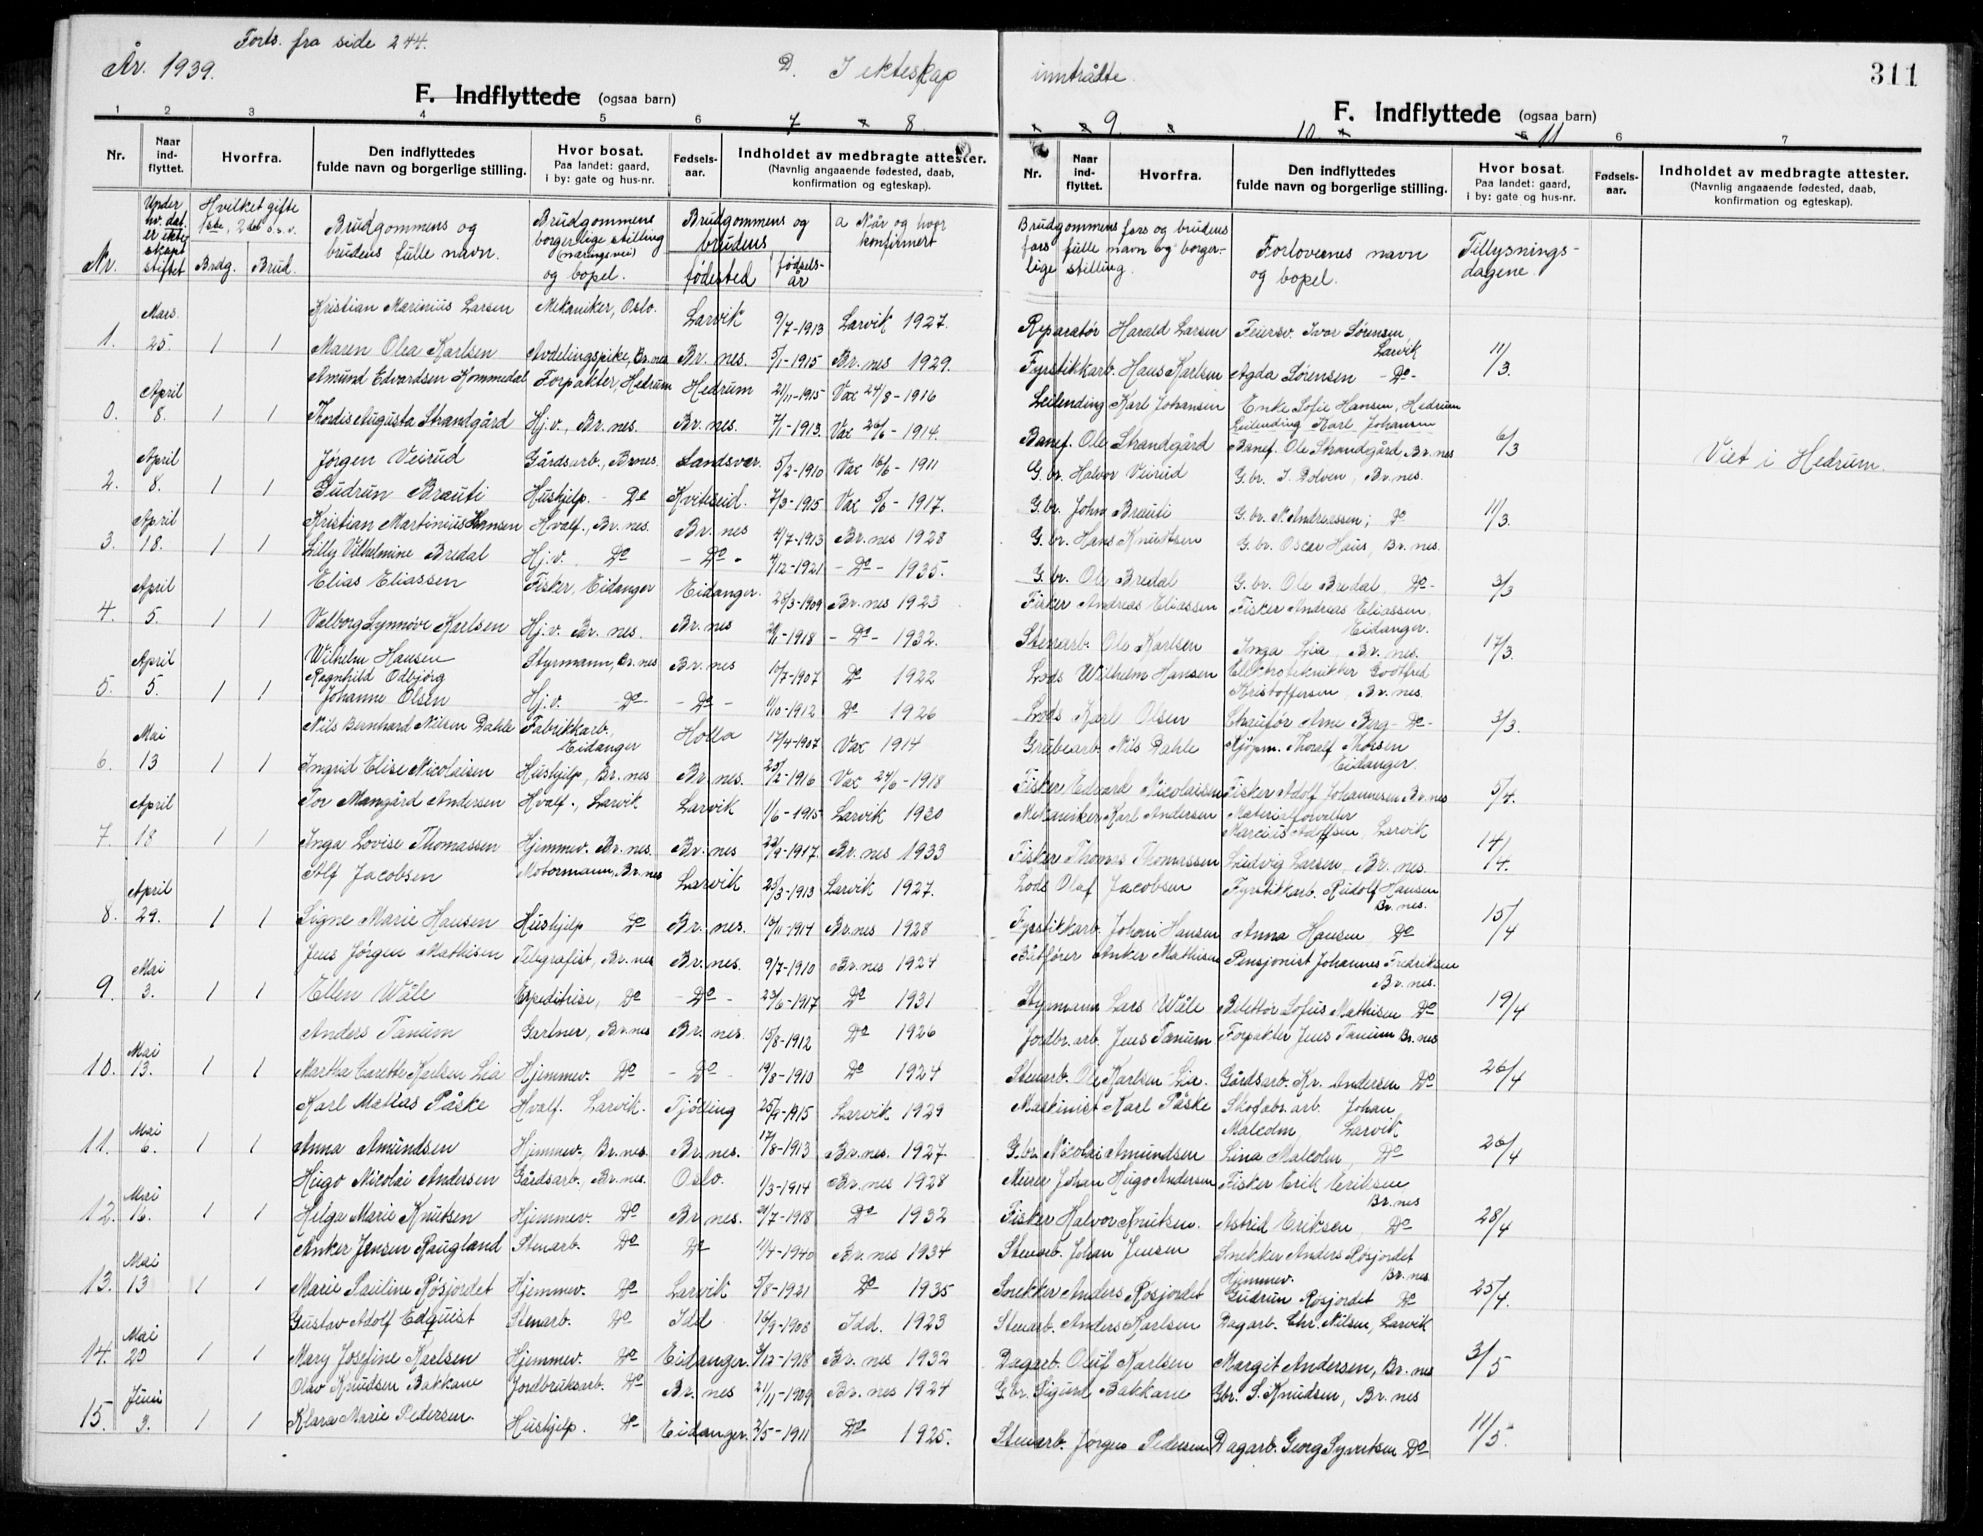 Forts. fra side 244.
År. 1939.
D. I ekteskap inntrådte.
311
F. Indflyttede (ogsaa barn)
F. Indflyttede (ogsaa barn)
1 2 3 4 5 6 7 8
9. 10 11 6 7
Nr. Naar ind-flyttet. Hvorfra. Den indflyttedes fulde navn og borgerlige stilling. Hvor bosat. Paa landet: gaard, i by: gate og hus-nr. Fødsels-aar. Indholdet av medbragte attester. (Navnlig angaaende fødested, daab, konfirmation og egteskap).
Nr. Naar ind-flyttet. Hvorfra. Den indflyttedes fulde navn og borgerlige stilling. Hvor bosat. Paa landet: gaard, i by: gate og hus-nr. Fødsels-aar. Indholdet av medbragte attester. (Navnlig angaaende fødested, daab, konfirmation og egteskap).
Nr. Under hv. dat. er ekteskapet stiftet Hvilket gifte 1ste, 2det o.s.v. Brdg. Brud. Brudgommens og brudens fulle navn. Brudgommens borgerlige stilling (næringsvei) og bopel. Brudgommens og brudens fødested fødselsår a Når og hvor konfirmert
Brudgommens fars og brudens fars fulle navn og borgerlige stilling. Forlovernes navn og bopel. Tillysningsdagene.
Mars. Kristian Marinius Larsen Mekaniker, Oslo. Larvik 9/7-1913 Larvik 1927. Reparatør Harald Larsen Feiersv. Ivar Sørensen, Larvik
1. 25. 1 1 Maren Olea Karlsen Avdelingspike, Br.nes Br. nes. 5/1-1915 Br. nes 1929. Fyrstikkarb. Hans Karlsen Agda Sørensen -Do- 11/3.
April Amund Edvardsen Kommedal Forpakter, Hedrum Hedrum 21/11-1915 Vax 24/8-1916 Leilending Karl Johansen Enke Sofie Hansen, Hedrum
Leilending Karl Johansen
0. 8. 1 1 Thordis Augusta Strandgård Hj.v., Br. nes. Br. nes. 7/1-1913. Vax 26/6-1914. Banef. Ole Strandgård Banef. Ole Strandgård Br. nes 6/3 Viet i Hedrum.
April Jørgen Veirud Gårdsarb., Br.nes. Landsver. 5/2-1910 Vax 16/6-1911 G.br. Halvor Veirud G.br. J. Dolven, Br. nes.
2. 8. 1 1 Gudrun Brauti Hushjelp. - Do Kviteseid. 7/3-1915 Vax 5/6-1917. G.br. John Brauti G.br. N. Andreassen; Do 11/3.
April Kristian Martinius Hansen Hvalf., Br. nes. Br. nes 4/7-1913 Br. nes 1928 G.br. Hans Knudtsen G.br. Oscar Haus, Br. nes.
3. 18. 1 1 Lilly Vilhelmine Bredal Hj.v. Do -Do- 4/12-1921 -Do- 1935. G.br. Ole Bredal G.br. Ole Bredal, Do- 3/3
April Elias Eliassen Fisker, Eidanger Eidanger. 28/3-1909 Br. nes 1923 Fisker Andreas Eliassen Fisker Andreas Eliassen, Eidanger.
4. 5. 1 1 Valborg Synnøve Karlsen Hj.v. Br. nes. Br. nes 28/1-1918 -Do- 1932. Stenarb. Ole Karlsen Inga Lia, Br. nes. 17/3.
April Wilhelm Hansen Styrmann, Br. nes Br. nes 10/7-1907 Do 1922 Lods Wilhelm Hansen Elektrotekniker Godtfred Kristoffersen, Br. nes.
5. 5. 1 1 Ragnhild Odbjørg Johanne Olsen Hj.v. Do- -Do- 11/10-1912 Do 1926 Lods Karl Olsen Chaufør Arne Berg -Do- 3/3.
Mai Nils Bernhard Nilsen Dahle Fabrikkarb., Eidanger Holla 17/4-1907 Vax 1914 Grubearb. Nils Dahle Kjøpm. Thoralf Thorsen Eidanger.
6. 13 1 1 Ingrid Elise Nicolaisen Hushjelp, Br. nes Br. nes. 25/2-1916 Vax 24/6-1918 Fisker Edvard Nicolaissen Fisker Adolf Johannesen Br. nes 5/4.
April Tor Mangård Andersen Hvalf., Larvik Larvik 1/6-1915 Larvik 1930 Mekaniker Karl Andersen Materialforvalter Marcius Adolfsen, Larvik
7. 18 1 1 Inga Lovise Thomassen Hjemmev. Br. nes. Br. nes 29/9-1917. Br. nes 1933 Fisker Thomas Thomassen Ludvig Larsen, Br. nes. 14/4.
April Alf Jacobsen Motormann, Br. nes Larvik 25/3-1913 Larvik 1927. Lods Olaf Jacobsen Fyrstikkarb. Rudolf Hansen Br. nes.
8. 29. 1 1 Signe Marie Hansen Hushjelp Do Br. nes. 13/11-1914 Br. nes 1928 Fyrstikkarb. Johan Hansen Anna Hansen Do 15/4
Mai Jens Jørgen Mathisen Telegrafist, Br. nes Br. nes. 9/7-1910 Br. nes 1924 Båtfører Anker Mathisen Pensjonist Johannes Fredriksen Br. nes.
9. 3. 1 1 Ellen Wåle Expeditrise, Do -Do- 23/6-1917 Do 1931 Styrmann Lars Wåle Sofus Mathisen Do 19/4
Anders Tanum Gartner, Br. nes Br. nes. 15/8-1912 Do 1926 Jordbr.arb. Jens Tanum Forpakter Jens Tanum Br. nes
10. Mai 13. 1 1 Martha Carette Karlsen Lia Hjemmev. Do -Do- 19/8-1910 Do 1924 Stenarb. Ole Karlsen Lia. Gårdsarb. Kr. Andersen Do 26/4
Karl Matias Påske Hvalf. Larvik. Tjølling 25/9-1915 Larvik 1929 Maskinist Karl Påske Skofabr.arb. Johan Malcolm, Larvik
11. Mai 6. 1 1 Anna Amundsen Hjemmev. Br. nes. Br. nes. 17/8-1913 Br. nes. 1927. G.br. Nicolai Amundsen Lina Malcolm Do 26/4
Hugo Nicolai Andersen Gårdsarb., Br. nes. Oslo. 1/3-1914 Br. nes 1928 Murer Johan Hugo Andersen Fisker Erik Eriksen Br. nes
12. Mai 16. 1 1 Helga Marie Knutsen Hjemmev. Do Br. nes. 20/7-1918 Do 1932 Fisker Halvor Knutsen. Astrid Eriksen Do 28/4
Anker Jensen Raugland Stenarb. Do Do 11/4-1940 Br. nes 1934 Stenarb. Johan Jensen Snekker Anders Røsjordet Br. nes
13. Mai 13 1 1 Marie Pauline Røsjordet Hjemmev. Do Larvik 5/8-1921 Do 1935 Snekker Anders Røsjordet Hjemmev. Gudrun Rosjordet Do 25/4.
Gustav Adolf Edquist Stenarb. Do Idd 16/9-1908 Idd. 1923 Stenarb. Anders Karlsen Dagarb. Chr. Nilsen, Larvik
14. Mai 20 1 1 Mary Josefine Karlsen Hjemmev. Do Eidanger. 3/12-1918 Br. nes 1932 Dagarb. Oluf Karlsen Margit Andersen, Br. nes 3/5
Olav Knudsen Bakkane Jordbruksarb. Do Br. nes 21/11-1909 Br. nes 1924 G.br. Sigurd Bakkane Gbr. S. Knudsen, Br. nes
15. Juni 3. 1 1 Klara Marie Pedersen. Hushjelp. Do Eidanger. 2/5-1911 Do 1925. Stenarb. Jørgen Pedersen Dagarb. Georg Syvertsen Do 11/5.